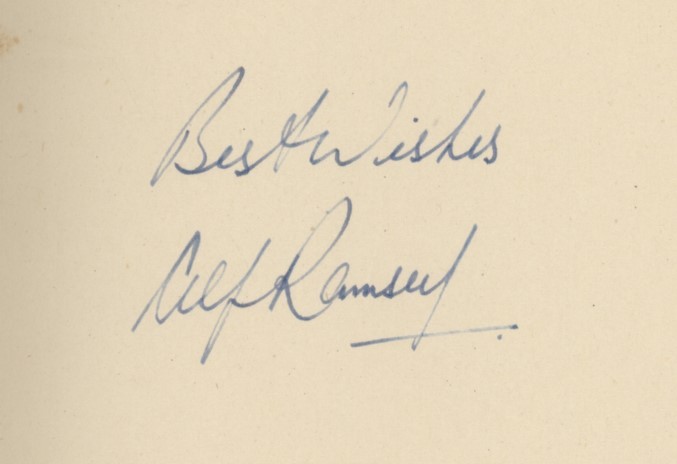 Best Wishes
Alf Ramsey